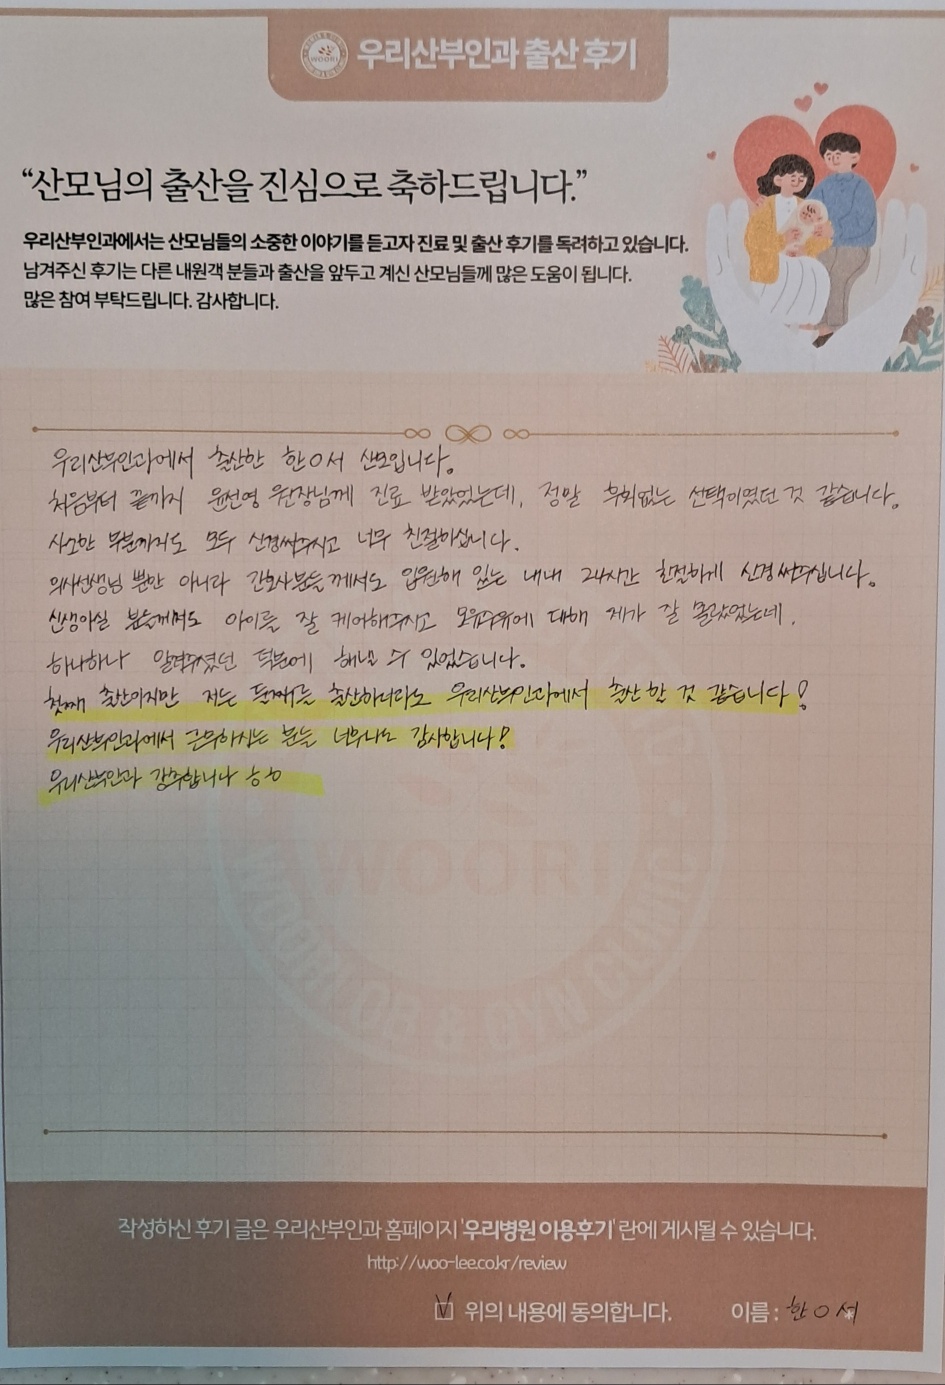 WOORI
우리산부인과 출산 후기
“산모님의 출산을 진심으로 축하드립니다.”
우리산부인과에서는 산모님들의 소중한 이야기를 듣고자 진료 및 출산 후기를 독려하고 있습니다.
남겨주신 후기는 다른 내원객 분들과 출산을 앞두고 계신 산모님들께 많은 도움이 됩니다.
많은 참여 부탁드립니다. 감사합니다.
우리산부인과에서 출산한 한ㅇ서 산모입니다.
처음부터 끝까지 윤선영 원장님께 진료 받았었는데, 정말 후회없는 선택이였던 것 같습니다.
사소한 부분까지도 모두 신경써주시고 너무 친절하십니다.
의사선생님 뿐만 아니라 간호사분들께서도 입원해 있는 내내 24시간 친절하게 신경써주십니다.
신생아실 분들께서도 아이를 잘 케어해주시고 모유수유에 대해 제가 잘 몰랐었는데,
하나하나 알려주셨던 덕분에 해낼 수 있었습니다.
첫째 출산이지만 저는 둘째를 출산하더라도 우리산부인과에서 출산할 것 같습니다!
우리산부인과에서 근무하시는 분들 너무나도 감사합니다!
우리산부인과 강추합니다 ㅎㅎ
WOORI
WOORI OB & GYN CLINIC
작성하신 후기 글은 우리산부인과 홈페이지 '우리병원 이용후기' 란에 게시될 수 있습니다.
http://woo-lee.co.kr/review
V 위의 내용에 동의합니다. 이름 : 한ㅇ서